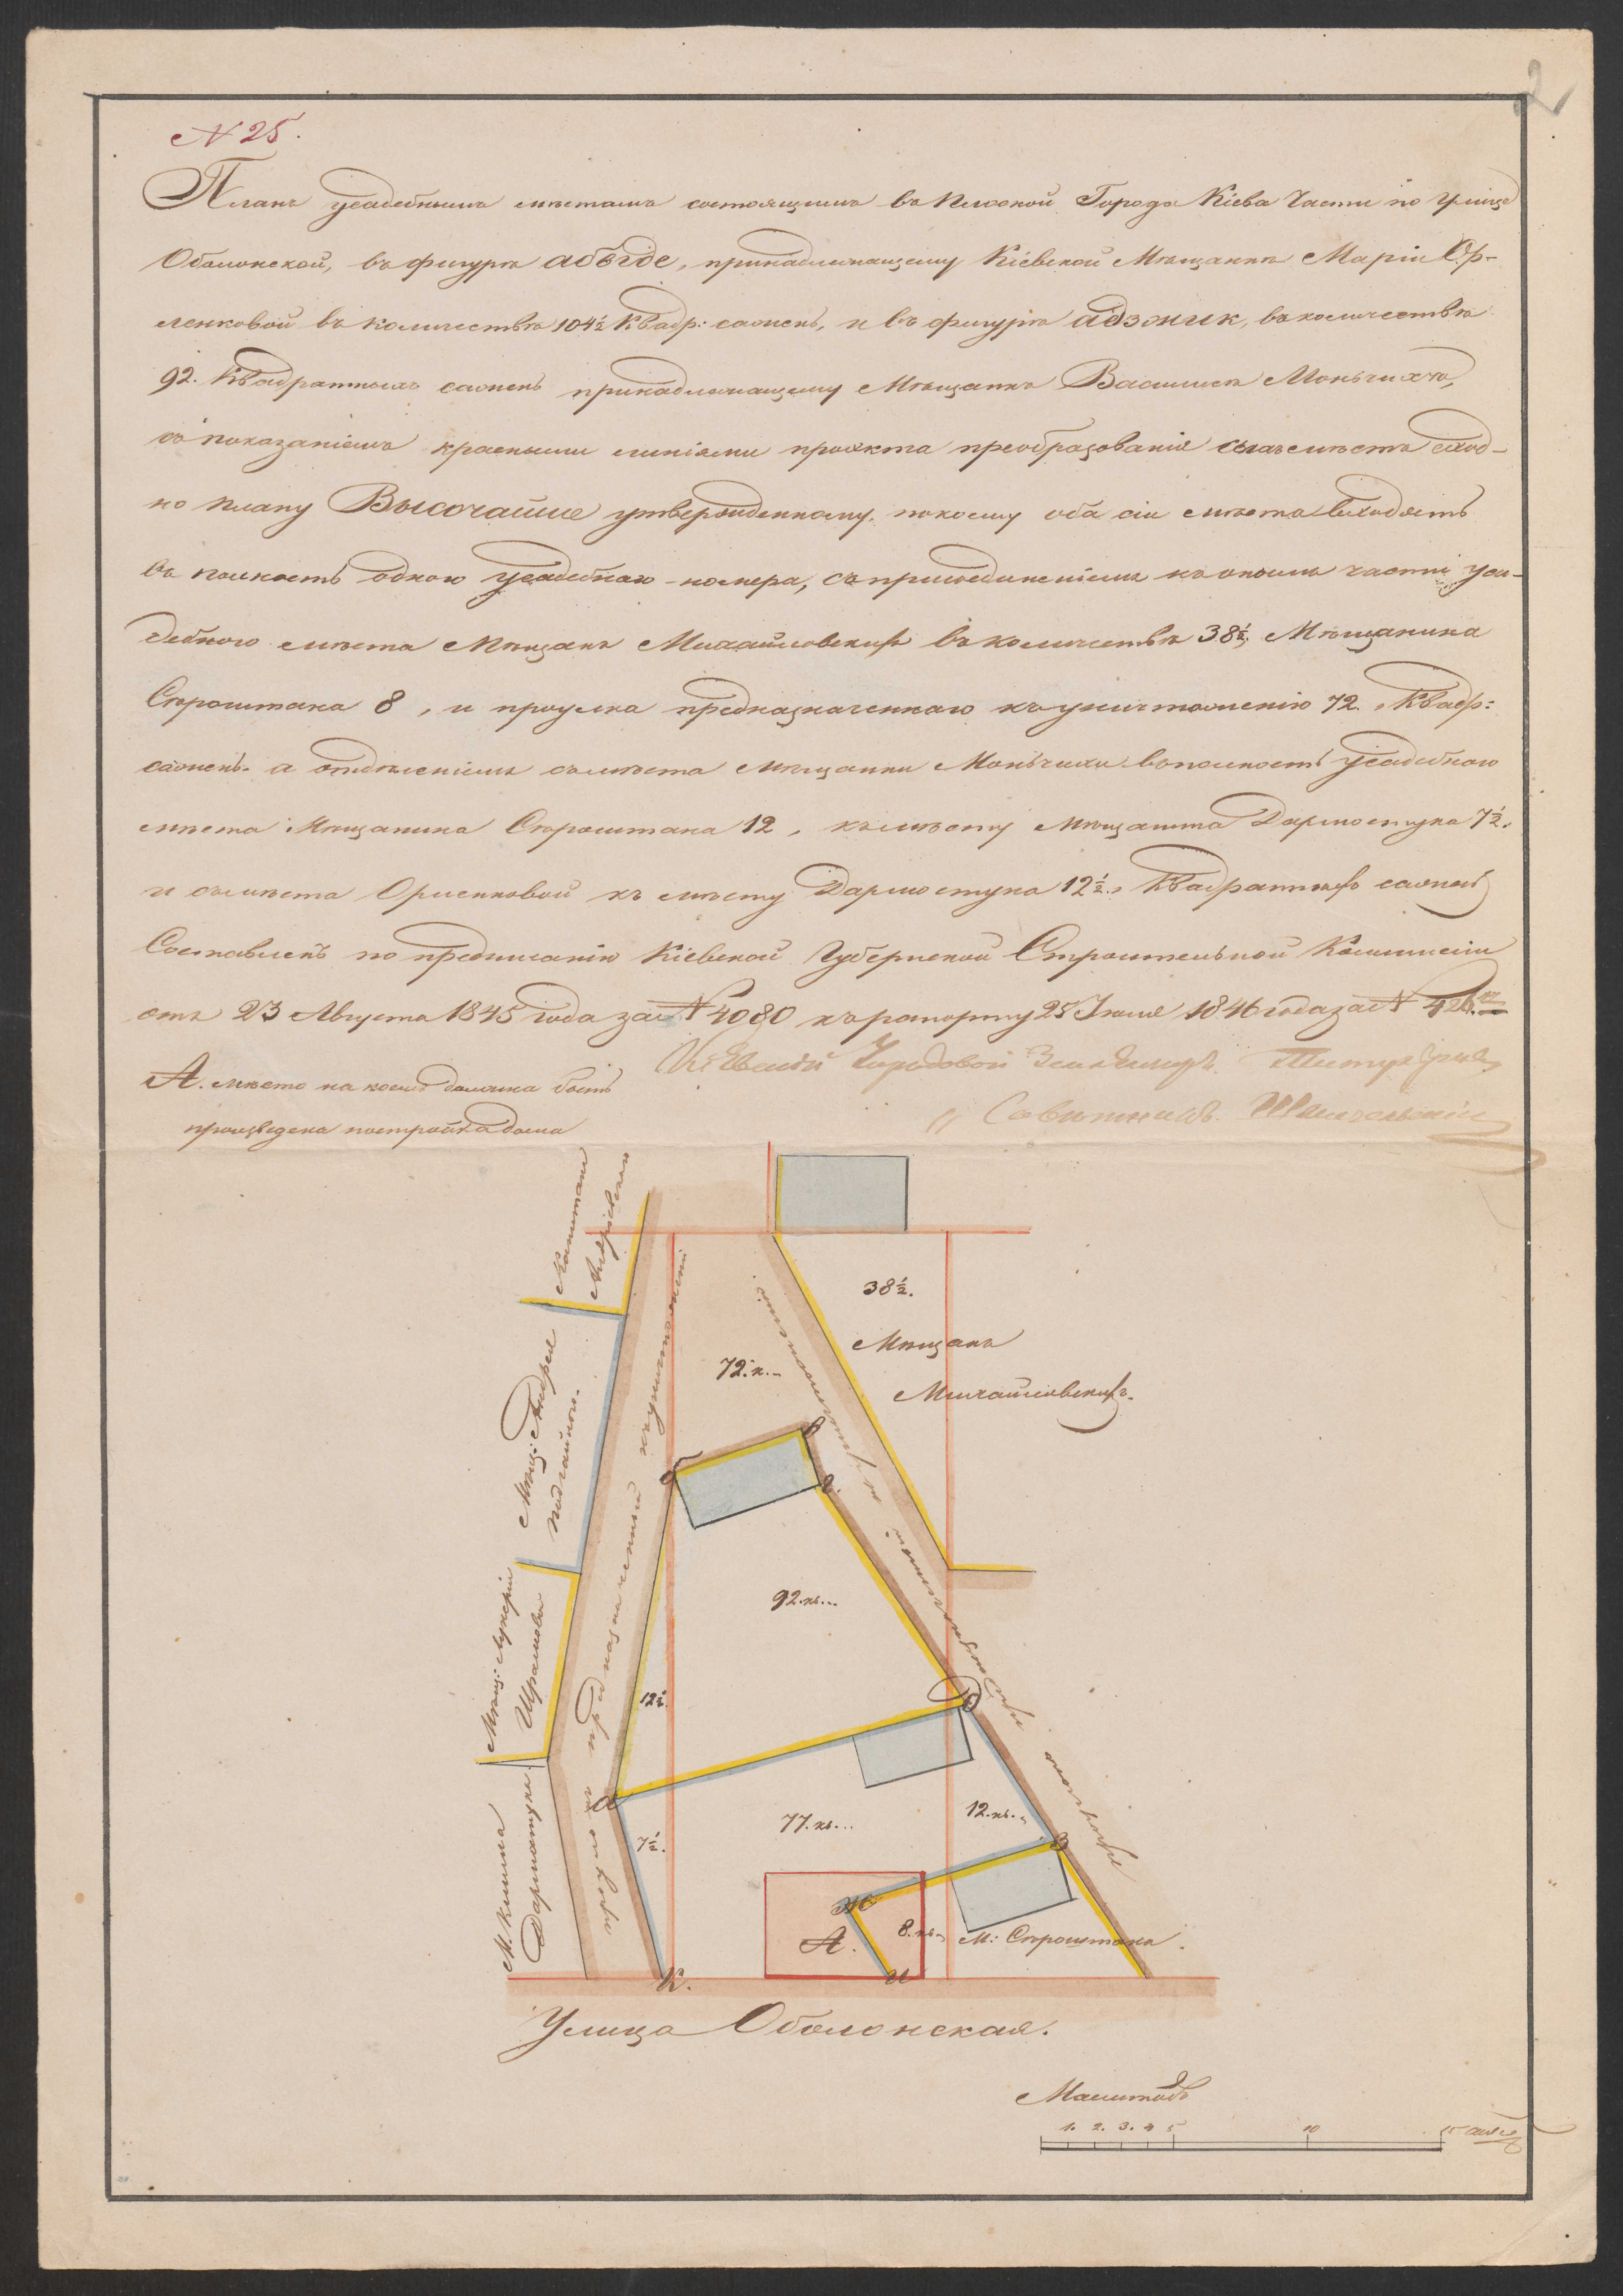 2
N 25.
Планъ усадебнымъ мѣстамъ состоящимъ въ Плоской Города Кіева Части по улице
Оболонской, въ фигурѣ абвгде, принадлежащему Кіевской Мѣщанкѣ Маріи Ор-
ленковой въ количествѣ 104½ Квадр: саженъ, и въ фигурѣ адзжик, въ количествѣ
92. Квадратныхъ саженъ принадлежащему Мѣщанкѣ Василисѣ Моньчихѣ,
съ показаніемъ красными линіями проэкта преобразованія сихъ мѣстъ сход-
но плану Высочайше утвержденному, по коему оба сіи мѣста входятъ
въ полность одного усадебнаго номера, съ присоединеніемъ къ онымъ части уса-
дебного мѣста Мѣщанъ Михайловскихъ въ количествѣ 38½, Мѣщанина
Сорокитана 8, и проулка предназначеннаго къ уничтоженію 72. Квадр:
саженъ. а отдѣленіемъ съ мѣста мѣщанки Моньчихи въ полность усадебного
мѣста Мѣщанина 12, къ мѣсту мѣщанина Дармостука 7½.
и съ мѣста Орленковой къ мѣсту Дармостука 12½., Квадратныхъ саженъ
Составленъ по предписанію Кіевской Губернской Строительной Коммиссіи
отъ 23 Августа 1845 года за N 4080 къ рапорту 25 Іюля 1846 года за N
Кіевскій Городовой Землемѣръ
А. мѣсто на коемъ должна быть
произведена постройка дома
Капитана
Андріевского
Мѣщ: Андрея
Мѣщ: Лукеріи
Шрамовой
М. Кипма
Дармостука
проулокъ предназначенный къ уничтоженію
38½.
Мѣщанъ
Михайловскихъ.
72. к...
б
в
г.
92. кв...
12½.
д
а
7½.
77. кв...
12. кв..
з
ж
А.
8. кв.
М:
и
к.
Улица Оболонская.
Масштабъ
1. 2. 3. 4 5 10 15 саженъ